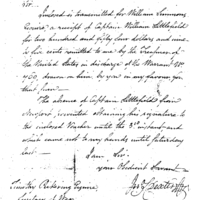 Sir.
Inclosed is transmitted for William Simmons
Esquire a receipt of Captain William Littlefield
for two hundred and sixty four dollars and nine
ty six cents remitted to me by the Treasurer of
the United States in discharge of the Warrant No
460, drawn on him, by you in my favour, for
that sum.
The absence of Captain Littlefield from
Newport, prevented obtaining his signature to
the enclosed Voucher until the 3d instant and
which came not to my hands until Saturday
last.
I am Sir
your Obedient Servant
Timothy Pickering Esquire
Secretary of War